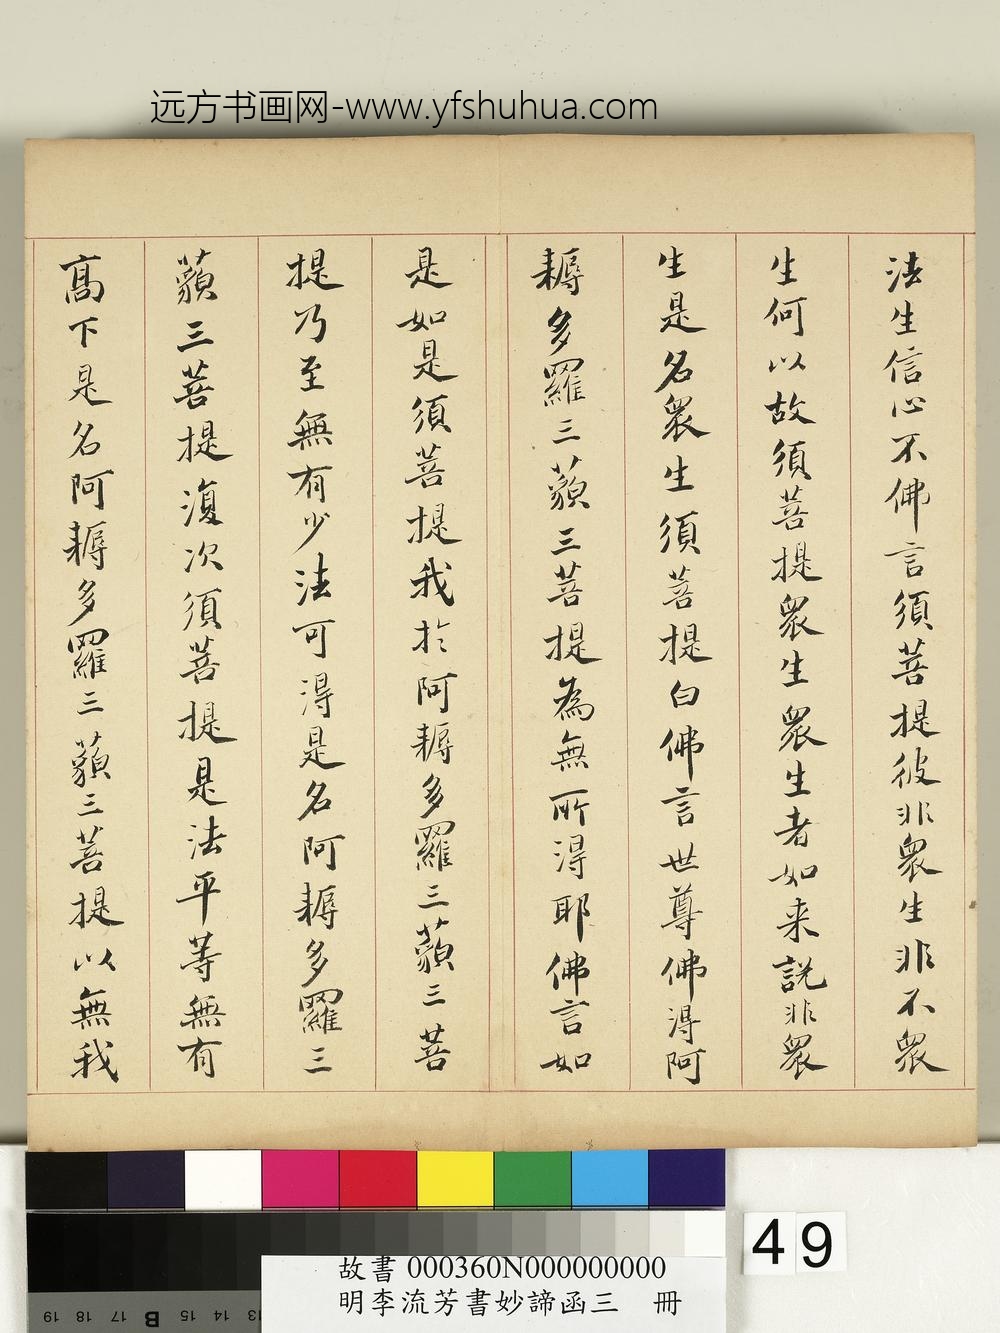 远方书画网-www.yfshuhua.com
法生信心不佛言須菩提彼非衆生非不衆
生何以故須菩提衆生衆生者如来説非衆
生是名衆生須菩提白佛言世尊佛得阿
耨多羅三藐三菩提為無所得耶佛言如
是如是須菩提我於阿耨多羅三藐三菩
提乃至無有少法可得是名阿耨多羅三
藐三菩提復次須菩提是法平等無有
高下是名阿耨多羅三藐三菩提以無我
49
故書 000360N000000000
明李流芳書妙諦函三 冊
19 18 17 B 15 14 13